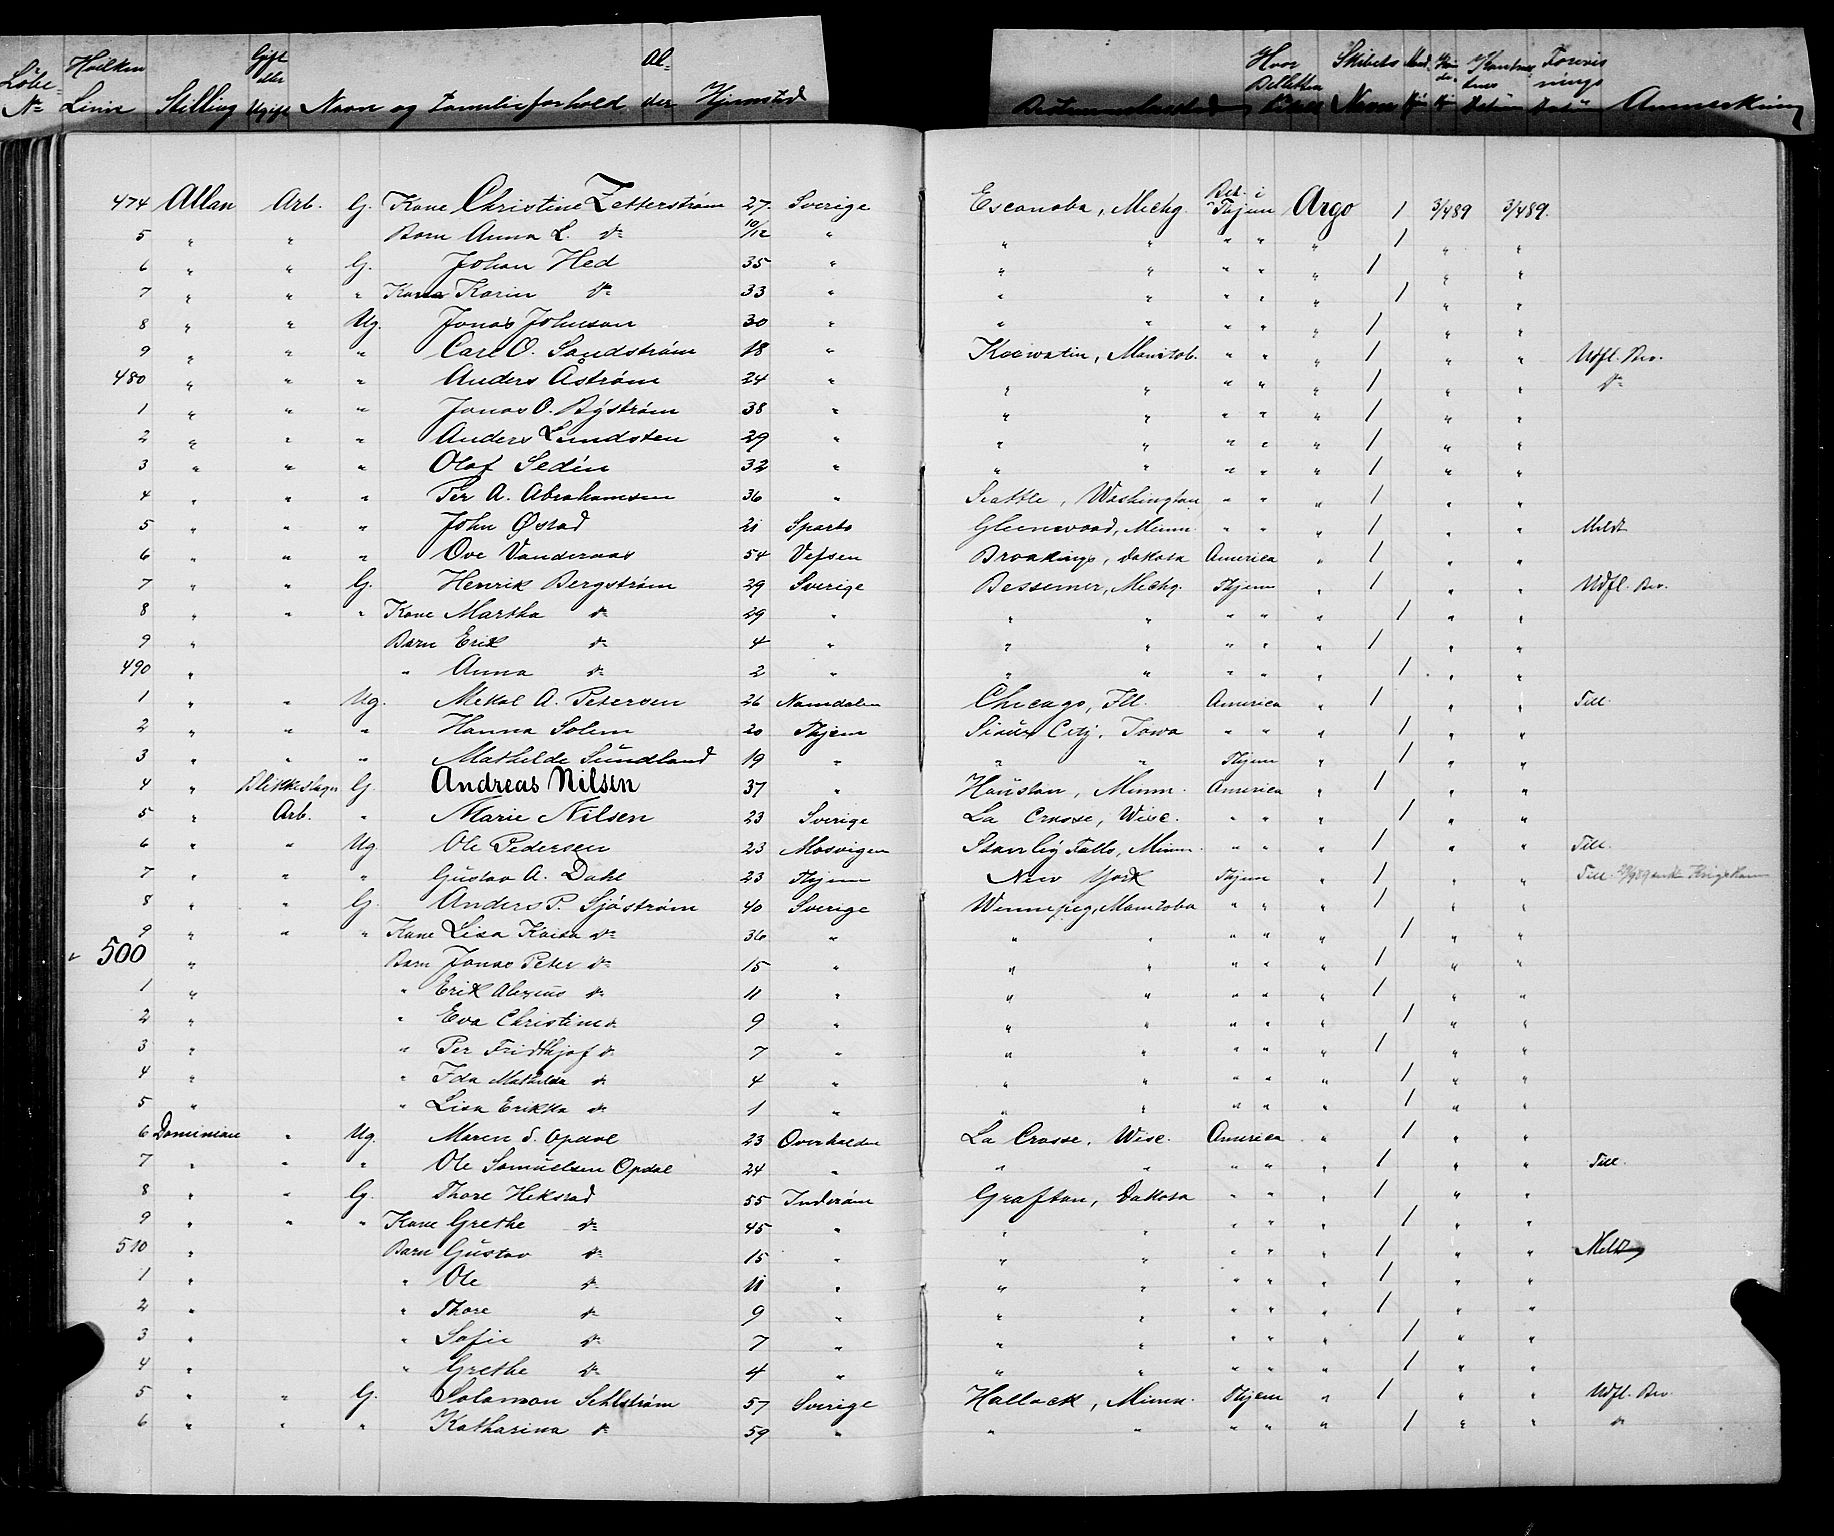 Løbe- No Hvilken Linie Stilling Gift eller Ugift Navn og Familieforhold Al- der Hjemsted Bestemmelsessted Hvor Billetten Skibets Navn Anmærkning
474 Allan Arb. G. Kone Christine Zetterstrøm 27 Sverige Escanaba, Michg. Bet. i Thjem Argo 1 3/4 89 3/4 89.
5 " " Barn Anna L. do 10/12 " " " " " " 1 " "
6 " " G. Johan Hed 35 " " " " " " 1 " "
7 " " " Kone Karin do 33 " " " " " " 1 " "
8 " " Ug. Jonas Johnson 30 " " " " " " 1 " "
9 " " " Carl O. Sandstrøm 18 " Keewatin, Manitob. " " " 1 " " Udfl. Bev.
480 " " " Anders Åstrøm 24 " " " " " " 1 " " do
1 " " " Jonas O. Byström 38 " " " " " " 1 " "
2 " " " Anders Lundsten 29 " " " " " " 1 " "
3 " " " Olof Sedin 32 " " " " " " 1 " "
4 " " " Per A. Abrahamsen 36 " Seattle, Washington " " " 1 " "
5 " " " John Øsrad 21 Sparbo Gleenwood, Minn. " " " 1 " " Meldt
6 " " " Ove Vandernas 54 Vefsen Brookings, Dakota America " 1 " "
7 " " G. Henrik Bergstrøm 29 Sverige Bessemer, Michg. Thjem " 1 " " Udfl. Bev.
8 " " " Kone Martha do 29 " " " " " " 1 " "
9 " Barn Erik do 4 " " " " " " 1 " "
490 " " Anna do 2 " " " " " " 1 " "
1 " " Ug. Mekal A. Petersen 26 Namdalen Chicago, Ill. America " 1 " " Till.
2 " " " Hanna Solem 20 Thjem Sioux City, Iowa " " " 1 " "
3 " " " Mathilde Sundland 19 " " " Thjem " 1 " "
4 " Blikkenslager G. Andreas Nilsen 37 " Houston, Minn. America " 1 " "
5 " Arb. " Marie Nilsen 23 Sverige La Crosse, Wisc. " " " 1 " "
6 " " Ug. Ole Pedersen 23 Mosvigen Stanley Falls, Minn. " " " 1 " " Till.
7 " " " Gustav A. Dahl 23 Thjem New York Thjem " 1 " " Till.
8 " " G. Anders P. Sjöström 40 Sverige Wennepeg, Manitoba " " " 1 " "
9 " " " Kone Lisa Kaisa do 36 " " " " " " 1 " "
500 " Barn Jonas Peter do 15 " " " " " " 1 " "
1 " " Erik Alexius do 11 " " " " " " 1 " "
2 " " Eva Christine do 9 " " " " " " 1 " "
3 " " Per Fridthjof do 7 " " " " " " 1 " "
4 " " Ida Mathilda do 4 " " " " " " 1 " "
5 " " Lisa Erikka do 1 " " " " " " 1 " "
6 Dominion " Ug. Maren S. Opdal 23 Overhalden La Crosse, Wisc. America " 1 " "
7 " " " Ole Samuelsen Opdal 24 " " " " " " 1 " " Till.
8 " " G. Thore Heksrad 55 Inderøen Grafton, Dakota " " " 1 " "
9 " " " Kone Grethe do 45 " " " " " " 1 " "
510 " Barn Gustav do 15 " " " " " " 1 " " Meldt
1 " " Ole do 11 " " " " " " 1 " "
2 " " Thore do 9 " " " " " " 1 " "
3 " " Sofie do 7 " " " " " " 1 " "
4 " " Grethe do 4 " " " " " " 1 " "
5 " " G. Salomon Sehlstrøm 57 Sverige Hallock, Minn. Thjem " 1 " " Udfl. Bev.
6 " " " Katharina do 59 " " " " " " 1 " " do